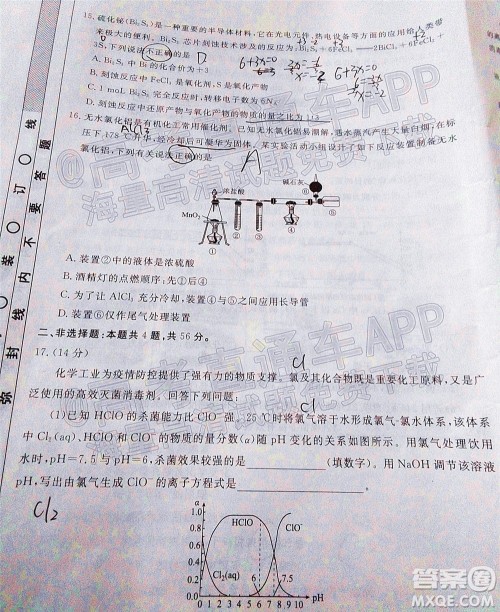 15.硫化铋(Bi₂S₃)是一种重要的半导体材料,它在光电元件、热电设备等方面的应用给人类带
来极大的便利。Bi₂S₃ 芯片刻蚀技术涉及的反应为:Bi₂S₃+6FeCl₃══2BiCl₃+6FeCl₂+
3S,下列说法不正确的是 D
6+3x=
x=-2
6+3x=0
3x=-6
x=-2
A. Bi₂S₃ 中,Bi的化合价为+3
B. 刻蚀反应中FeCl₃是氧化剂,S是氧化产物
C. 1 mol Bi₂S₃ 完全刻蚀时,转移电子数为6Nₐ
D. 刻蚀反应中还原产物与氧化产物的物质的量之比为
16.无水氯化铝是有机化工常用催化剂。已知:无水氯化铝易潮解,遇水蒸汽产生大量白烟,在常
AlCl3
压下,178℃升华,经冷却后可凝华为固体。某实验活动小组设计了如下反应装置制备无水
氯化铝,下列有关说法正确的是
A
浓盐酸
碱石灰
MnO₂
① ② ③ ④ ⑤ ⑥
A. 装置②中的液体是浓硫酸
B. 酒精灯的点燃顺序:先④后①
C. 为了让 AlCl₃ 充分冷却,装置④与⑤之间应用长导管
D. 装置⑥仅作尾气处理装置
二、非选择题:本题共4题,共56分。
17.(14分)
Cl
化学工业为疫情防控提供了强有力的物质支撑。氯及其化合物既是重要化工原料,又是广
泛使用的高效灭菌消毒剂。回答下列问题:
(1)已知HClO的杀菌能力比ClO⁻强。25℃时将氯气溶于水形成氯气-氯水体系,该体系
中Cl₂(aq)、HClO和ClO⁻的物质的量分数(α)随pH变化的关系如图所示。用氯气处理饮用
水时,pH=7.5与pH=6时,杀菌效果较强的是________(填数字)。用NaOH调节该溶液
pH,写出由氯气生成ClO⁻的离子方程式是________。
Cl2
α
1
0.8
0.6
0.4
0.2
0
HClO
ClO⁻
Cl₂(aq)
6
7.5
0 1 2 3 4 5 6 7 8 9 10 pH
弥 封 线 内 不 要 答 题
装 订 线
@高考直通车APP
海量高清试题免费下载
高考直通车APP
答案圈
MXQE.COM